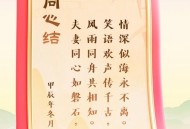 同心结
情深似海永不离。
笑语欢声传千古，
风雨同舟共相知。
夫妻同心如磐石，
甲辰年冬月